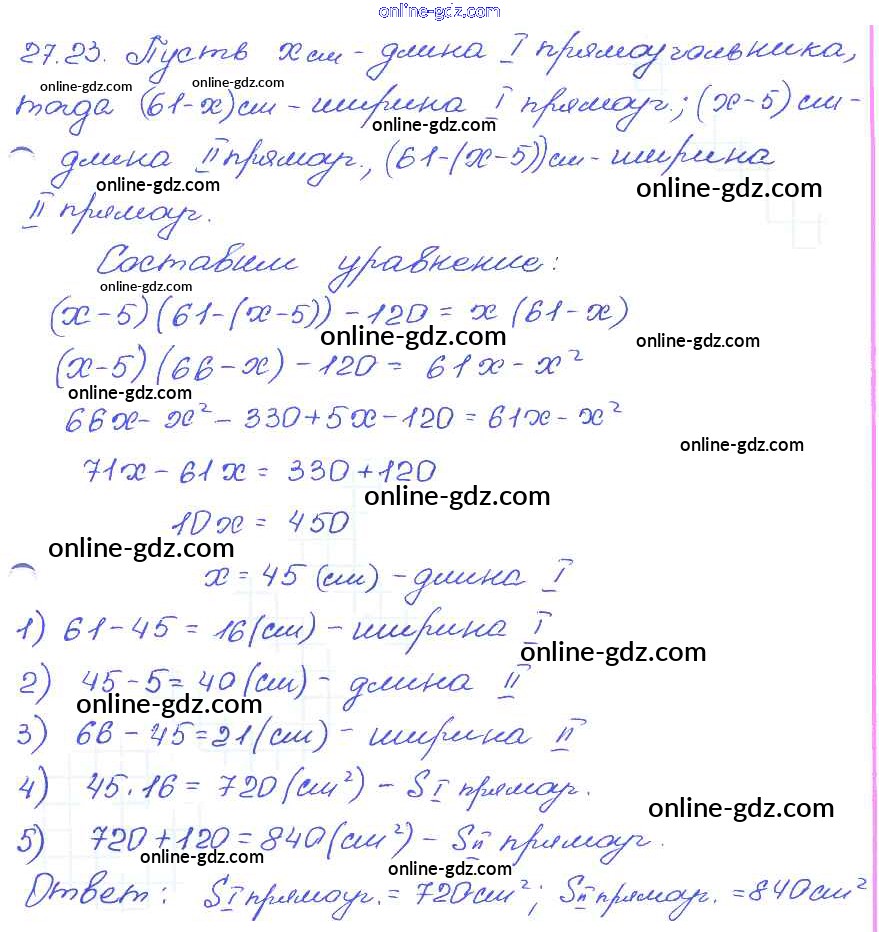 online-gdz.com
27.23. Пусть x см - длина I прямоугольника,
online-gdz.com online-gdz.com
тогда (61-x) см - ширина I прямоуг.; (x-5) см -
online-gdz.com
длина II прямоуг., (61-(x-5)) см - ширина
online-gdz.com online-gdz.com
II прямоуг.
Составим уравнение:
online-gdz.com
(x-5)(61-(x-5)) - 120 = x(61-x)
online-gdz.com online-gdz.com
(x-5)(66-x) - 120 = 61x - x²
online-gdz.com
66x - x² - 330 + 5x - 120 = 61x - x²
online-gdz.com
71x - 61x = 330 + 120
online-gdz.com
10x = 450
online-gdz.com
x = 45 (см) - длина I
1) 61 - 45 = 16 (см) - ширина I
online-gdz.com
2) 45 - 5 = 40 (см) - длина II
online-gdz.com
3) 66 - 45 = 21 (см) - ширина II
4) 45 · 16 = 720 (см²) - S I прямоуг.
online-gdz.com
5) 720 + 120 = 840 (см²) - S II прямоуг.
online-gdz.com online-gdz.com
Ответ: S I прямоуг. = 720 см²; S II прямоуг. = 840 см²